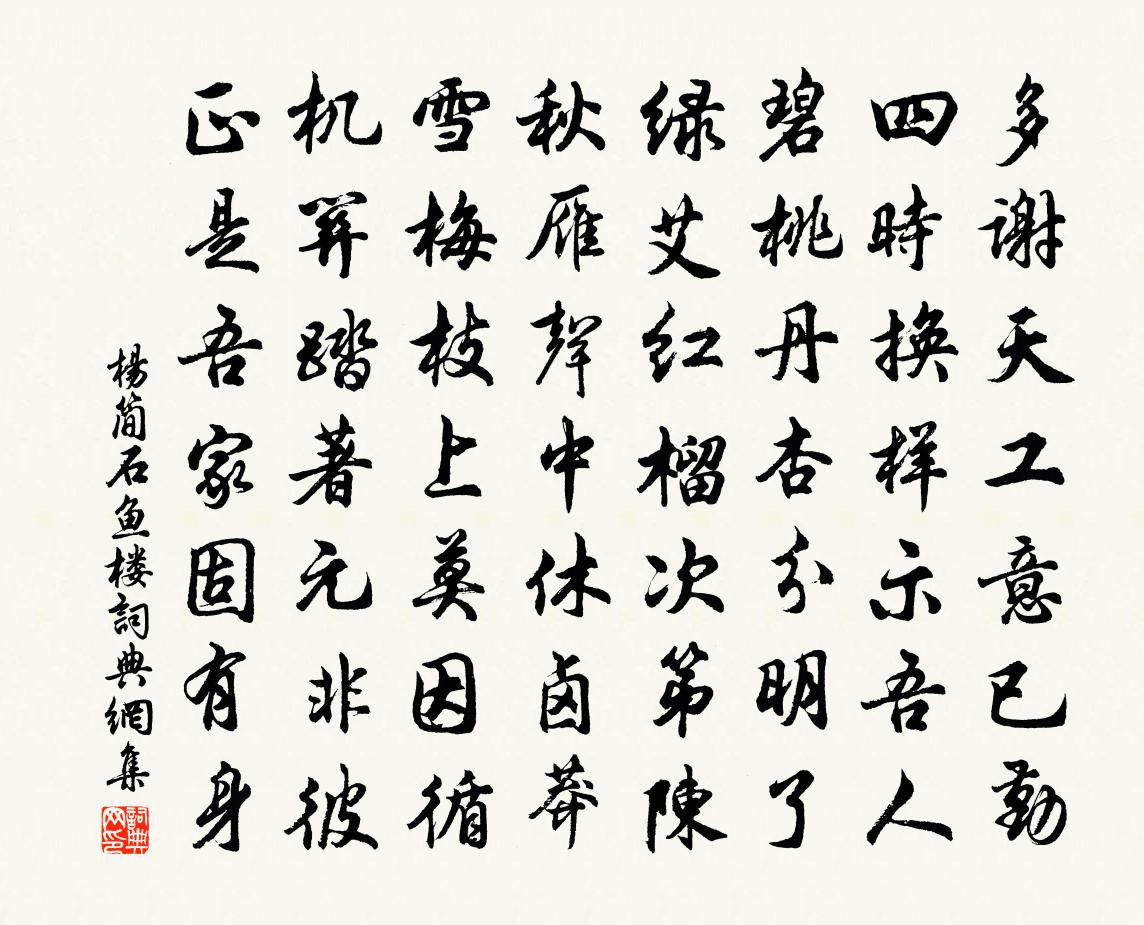 多謝天工意已勤
四時換样示吾人
碧桃丹杏分明了
绿艾红榴次第陳
秋雁聲中休卤莽
雪梅枝上莫因循
机笄踏著元非彼
正是吾家固有身
楊简石鱼楼詞典網集
詞典网印